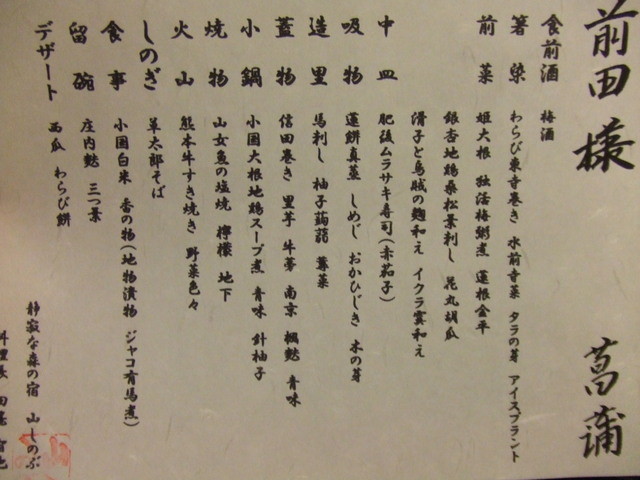 前田様 菖蒲
食前酒 梅酒
箸染 わらび東寺巻き 水前寺菜 タラの芽 アイスプラント
前菜 姫大根 独活梅粥煮 蓮根金平
銀杏地鶏桑松葉刺し 花丸胡瓜
滑子と烏賊の麹和え イクラ霙和え
中皿 肥後ムラサキ寿司(赤茄子)
吸物 蓮餅真蒸 しめじ おかひじき 木の芽
造里 馬刺し 柚子蒟蒻 蓴菜
蓋物 信田巻き 里芋 牛蒡 南京 楓麩 青味
小鍋 小国大根地鶏スープ煮 青味 針柚子
焼物 山女魚の塩焼 檸檬 地下
火山 熊本牛すき焼き 野菜色々
しのぎ 草太郎そば
食事 小国白米 香の物(地物漬物 ジャコ有馬煮)
留碗 庄内麩 三つ葉
デザート 西瓜 わらび餅
静寂な森の宿 山しのぶ
料理長